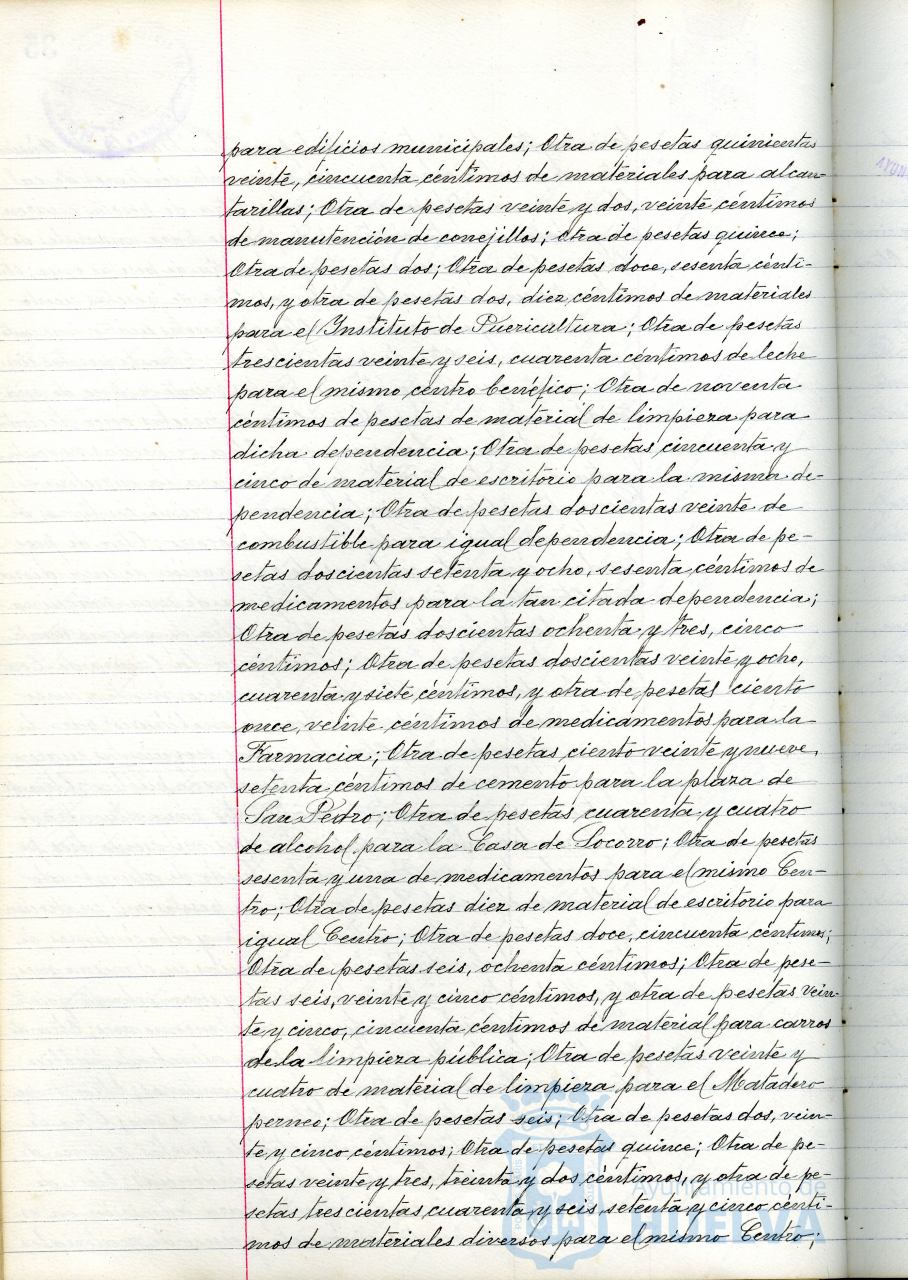 para edificios municipales; Otra de pesetas quinientas
veinte, cincuenta céntimos de materiales para alcan-
tarillas; Otra de pesetas veinte y dos, veinte céntimos
de manutención de conejillos; otra de pesetas quince;
Otra de pesetas dos; Otra de pesetas doce, sesenta cénti-
mos, y otra de pesetas dos, diez céntimos de materiales
para el Instituto de Puericultura; Otra de pesetas
trescientas veinte y seis, cuarenta céntimos de leche
para el mismo centro benéfico; Otra de noventa
céntimos de pesetas de material de limpieza para
dicha dependencia; Otra de pesetas cincuenta y
cinco de material de escritorio para la misma de-
pendencia; Otra de pesetas doscientas veinte de
combustible para igual dependencia; Otra de pe-
setas doscientas setenta y ocho, sesenta céntimos de
medicamentos para la tan citada dependencia;
Otra de pesetas doscientas ochenta y tres, cinco
céntimos; Otra de pesetas doscientas veinte y ocho,
cuarenta y siete céntimos, y otra de pesetas ciento
once, veinte céntimos de medicamentos para la
Farmacia; Otra de pesetas ciento veinte y nueve,
setenta céntimos de cemento para la plaza de
San Pedro; Otra de pesetas cuarenta y cuatro
de alcohol para la Casa de Socorro; Otra de pesetas
sesenta y una de medicamentos para el mismo Cen-
tro; Otra de pesetas diez de material de escritorio para
igual Centro; Otra de pesetas doce, cincuenta céntimos;
Otra de pesetas seis, ochenta céntimos; Otra de pese-
tas seis, veinte y cinco céntimos, y otra de pesetas vein-
te y cinco, cincuenta céntimos de material para carros
de la limpieza pública; Otra de pesetas veinte y
cuatro de material de limpieza para el Matadero
perneo; Otra de pesetas seis; Otra de pesetas dos, vein-
te y cinco céntimos; Otra de pesetas quince; Otra de pe-
setas veinte y tres, treinta y dos céntimos, y otra de pe-
setas trescientas cuarenta y seis setenta y cinco cénti-
mos de materiales diversos para el mismo Centro;
Ayuntamiento de
HUELVA